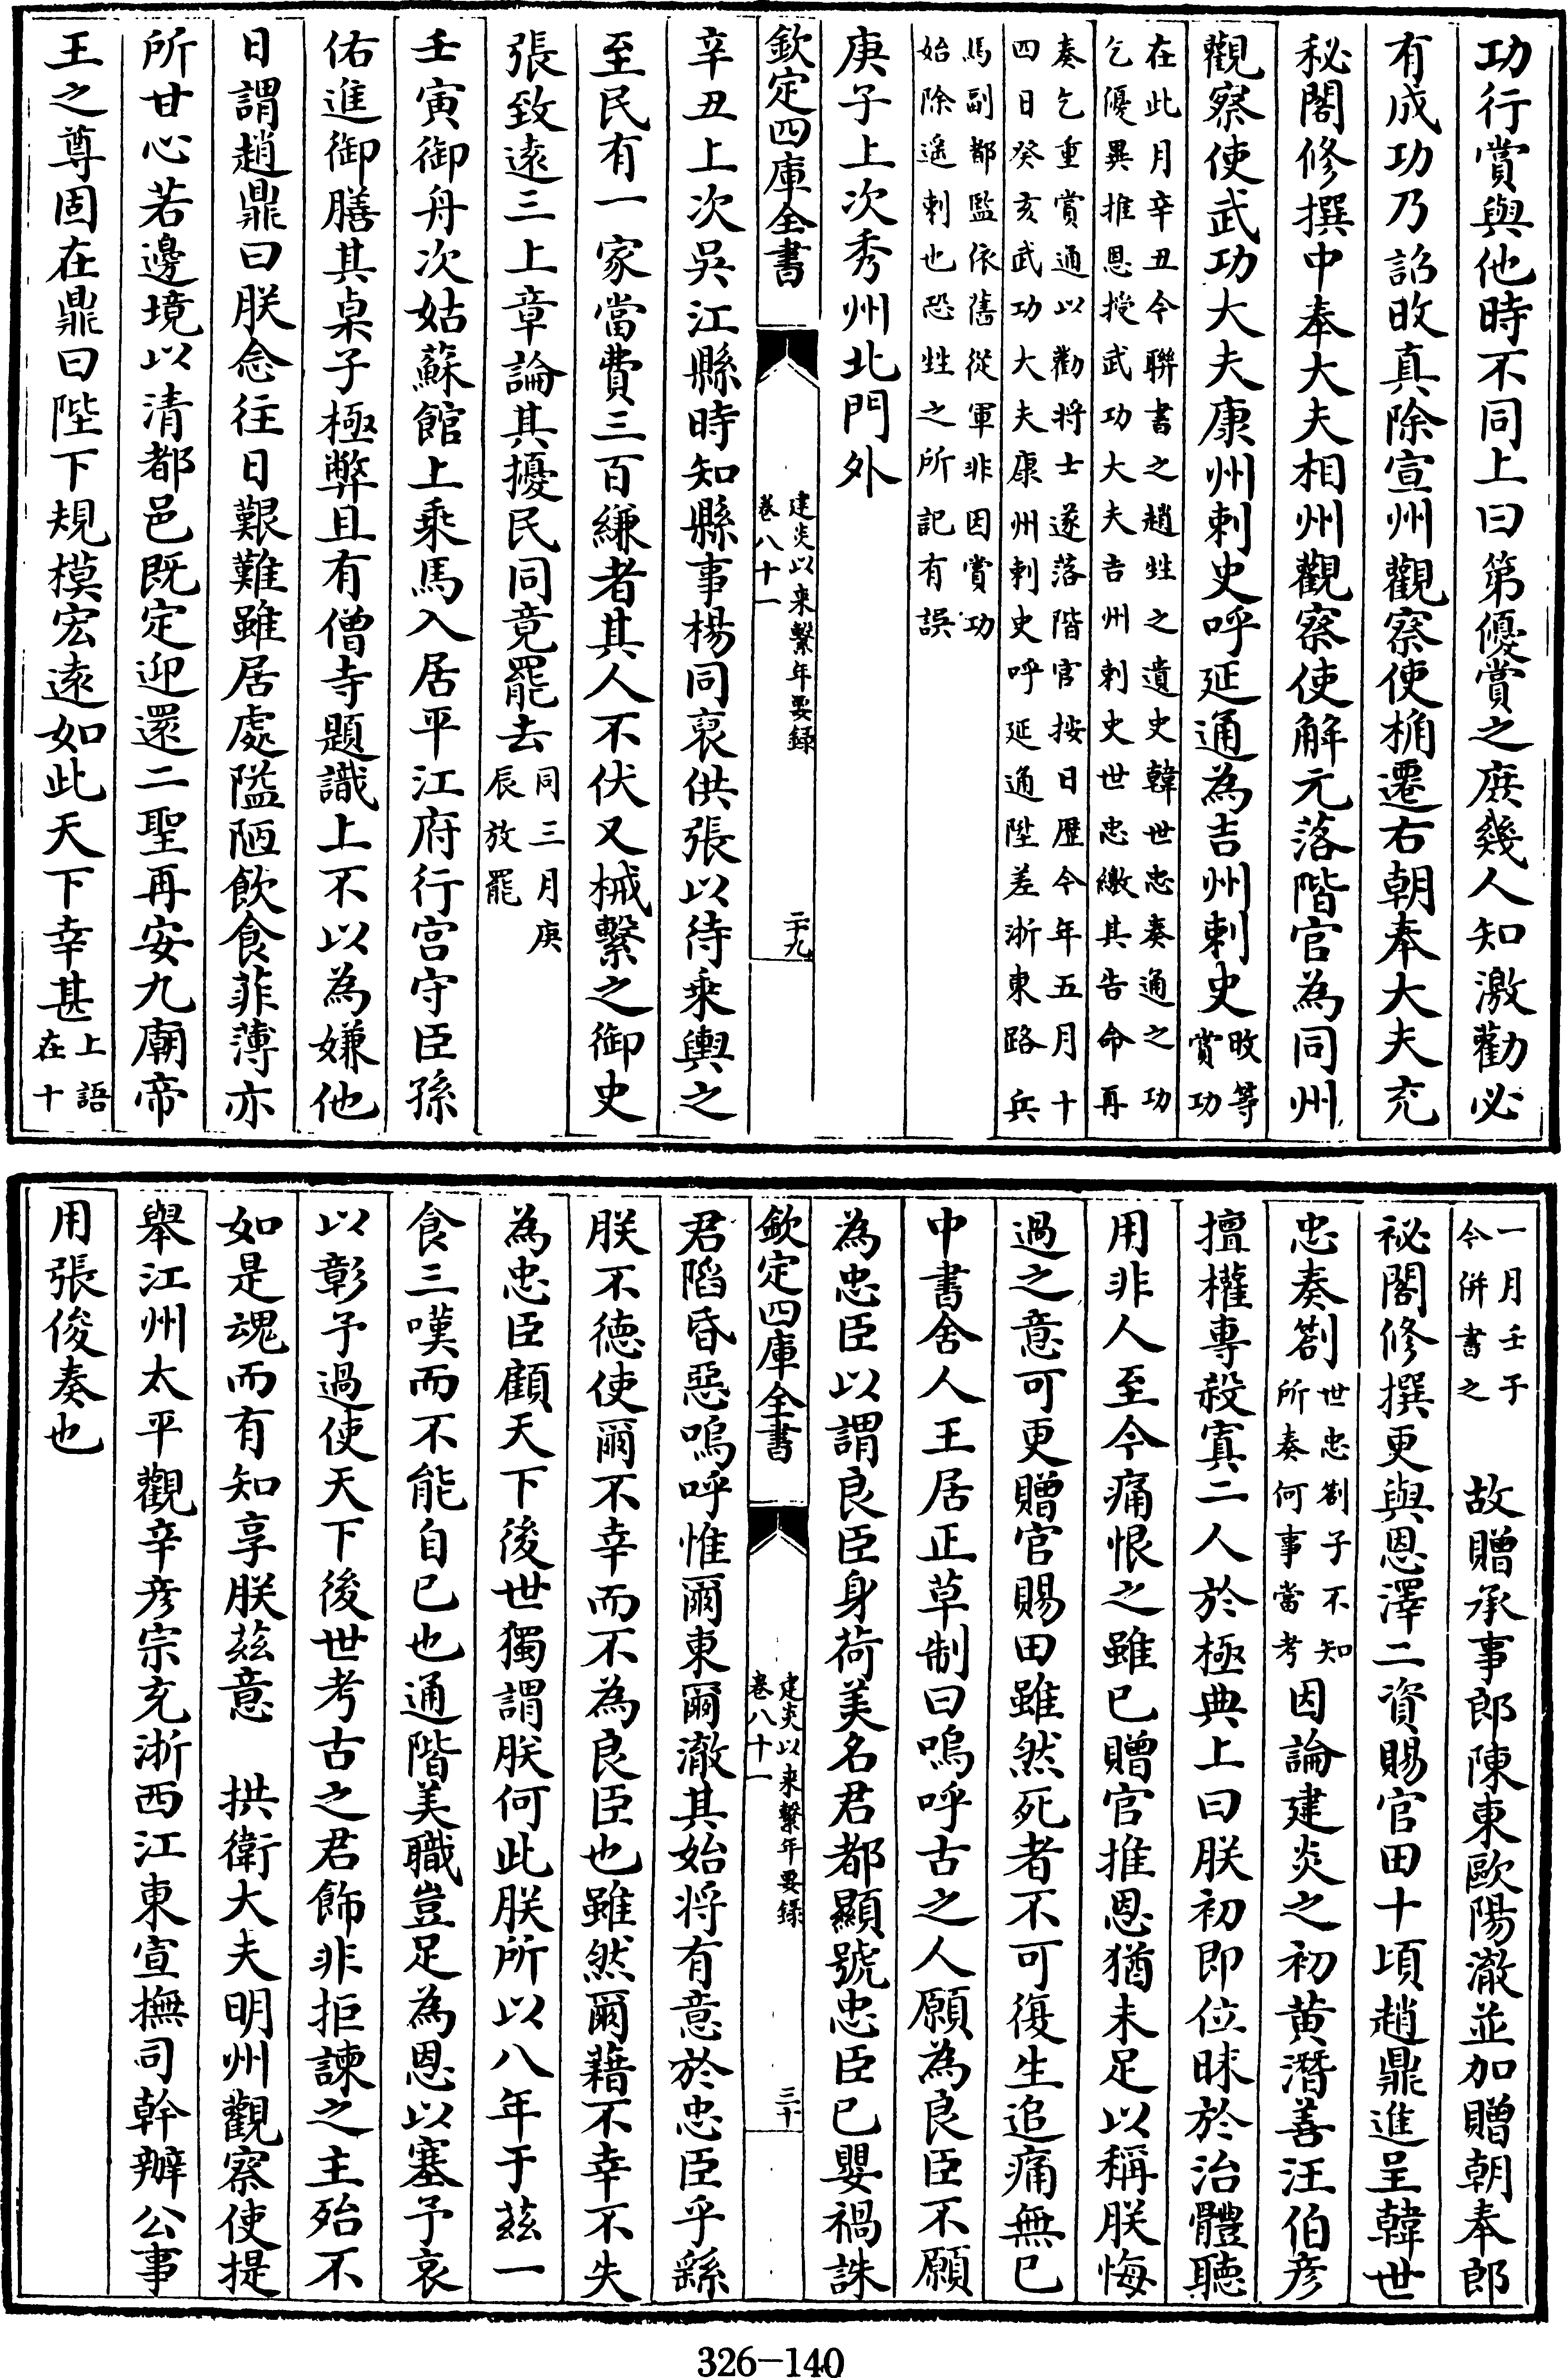 功行賞與他時不同上曰第優賞之庶幾人知激勸必
有成功乃詔敀真除宣州觀察使桷遷右朝奉大夫充
秘閣修撰中奉大夫相州觀察使解元落階官為同州
觀察使武功大夫康州刺史呼延通為吉州刺史敀等賞功
在此月辛丑今聯書之趙甡之遺史韓世忠奏通之功
乞優異推恩授武功大夫吉州刺史世忠繳其告命再
奏乞重賞通以勸將士遂落階官按日歴今年五月十
四日癸亥武功大夫康州刺史呼延通陞差浙東路兵
馬副都監依舊從軍非因賞功
始除遥刺也恐甡之所記有誤
庚子上次秀州北門外
欽定四庫全書
建炎以來繫年要録
卷八十一
二十九
辛丑上次吳江縣時知縣事楊同裒供張以待乘輿之
至民有一家當費三百縑者其人不伏又械繫之御史
張致遠三上章論其擾民同竟罷去同三月庚辰放罷
壬寅御舟次姑蘇館上乘馬入居平江府行宫守臣孫
佑進御膳其桌子極弊且有僧寺題識上不以為嫌他
日謂趙鼎曰朕念往日艱難雖居處隘陋飲食菲薄亦
所甘心若邊境以清都邑既定迎還二聖再安九廟帝
王之尊固在鼎曰陛下規模宏遠如此天下幸甚上語在十
一月壬子今併書之 故贈承事郎陳東歐陽澈並加贈朝奉郎
祕閣修撰更與恩澤二資賜官田十頃趙鼎進呈韓世
忠奏劄世忠劄子不知所奏何事當考因論建炎之初黄潛善汪伯彦
擅權專殺寘二人於極典上曰朕初即位昧於治體聽
用非人至今痛恨之雖已贈官推恩猶未足以稱朕悔
過之意可更贈官賜田雖然死者不可復生追痛無已
中書舍人王居正草制曰嗚呼古之人願為良臣不願
為忠臣以謂良臣身荷美名君都顯號忠臣已嬰禍誅
欽定四庫全書
建炎以來繫年要録
卷八十一
三十
君陷昏惡嗚呼惟爾東爾澈其始將有意於忠臣乎繇
朕不德使爾不幸而不為良臣也雖然爾藉不幸不失
為忠臣顧天下後世獨謂朕何此朕所以八年于兹一
食三嘆而不能自已也通階美職豈足為恩以塞予哀
以彰予過使天下後世考古之君飾非拒諫之主殆不
如是魂而有知享朕兹意 拱衛大夫明州觀察使提
舉江州太平觀辛彦宗充浙西江東宣撫司幹辦公事
用張俊奏也
326-140